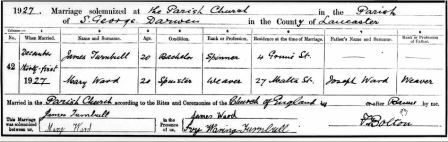 1927. Marriage solemnized at the Parish Church in the Parish
of S. George Darwen in the County of Lancaster
No. When Married. Name and Surname. Age. Condition. Rank or Profession. Residence at the time of Marriage. Father's Name and Surname. Rank or Profession of Father.
42 December thirty-first 1927
James Turnbull 20 Bachelor Spinner 4 St.
Mary Ward 20 Spinster Weaver 27 Malta St. Joseph Ward Weaver
Married in the Parish Church according to the Rites and Ceremonies of the Church of England by or after Banns by me,
This Marriage was solemnized between us, James Turnbull Mary Ward in the Presence of us, James Ward Ivy Waring Turnbull Bolton